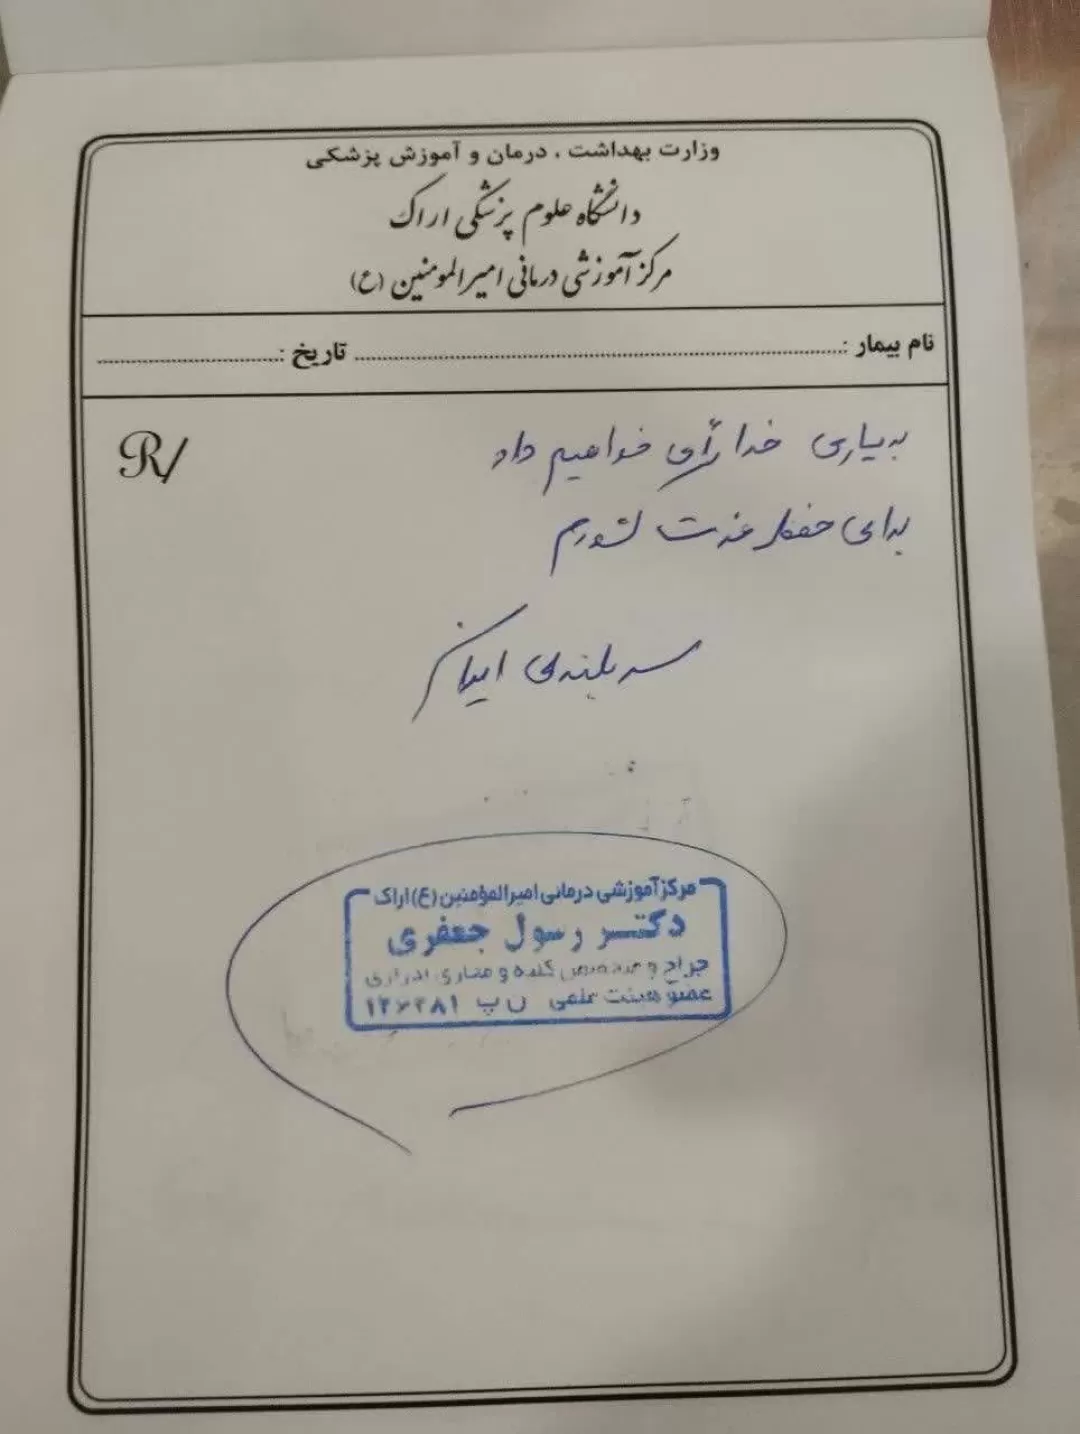 وزارت بهداشت ، درمان و آموزش پزشکی
دانشگاه علوم پزشکی اراک
مرکز آموزشی درمانی امیرالمومنین (ع)
نام بیمار : تاریخ :
R/
به یاری خدا رأی خواهیم داد
برای حفظ عزت کشورم
سربلندی ایران
مرکز آموزشی درمانی امیرالمؤمنین (ع) اراک
دکتر رسول جعفری
جراح و متخصص کلیه و مجاری ادراری
عضو هیئت علمی ن پ